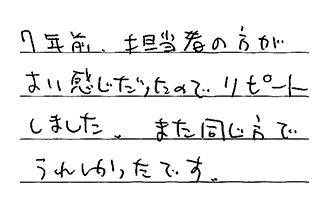 7年前、担当者の方が
よい感じだったのでリピート
しました。また同じ方で
うれしかったです。